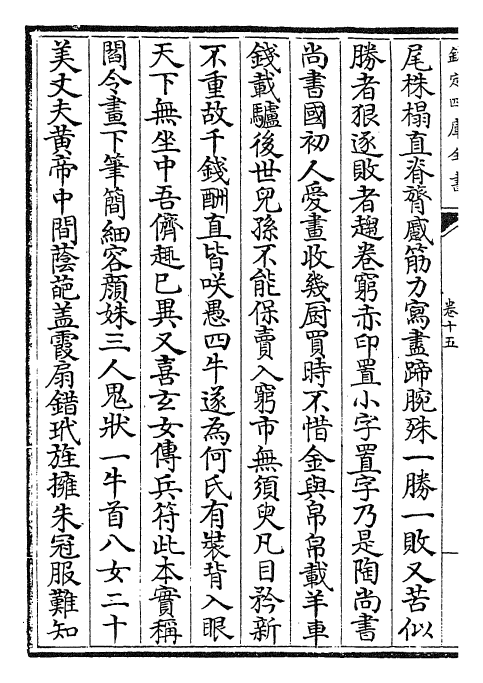 欽定四庫全書
卷十五
尾株榻直脊膂感筋力寫盡蹄腕殊一勝一敗又苦似
勝者狠逐敗者趨卷窮赤印置小字置字乃是陶尚書
尚書國初人愛畫收幾厨買時不惜金與帛帛載羊車
錢載驢後世兒孫不能保賣入窮市無須臾凡目矜新
不重故千錢酬直皆咲愚四牛遂為何氏有裝背入眼
天下無坐中吾儕趣已異又喜玄女傳兵符此本實稱
閻令畫下筆簡細容顔姝三人鬼狀一牛首八女二十
美丈夫黄帝中間蔭葩盖霞扇錯玳旌擁朱冠服難知